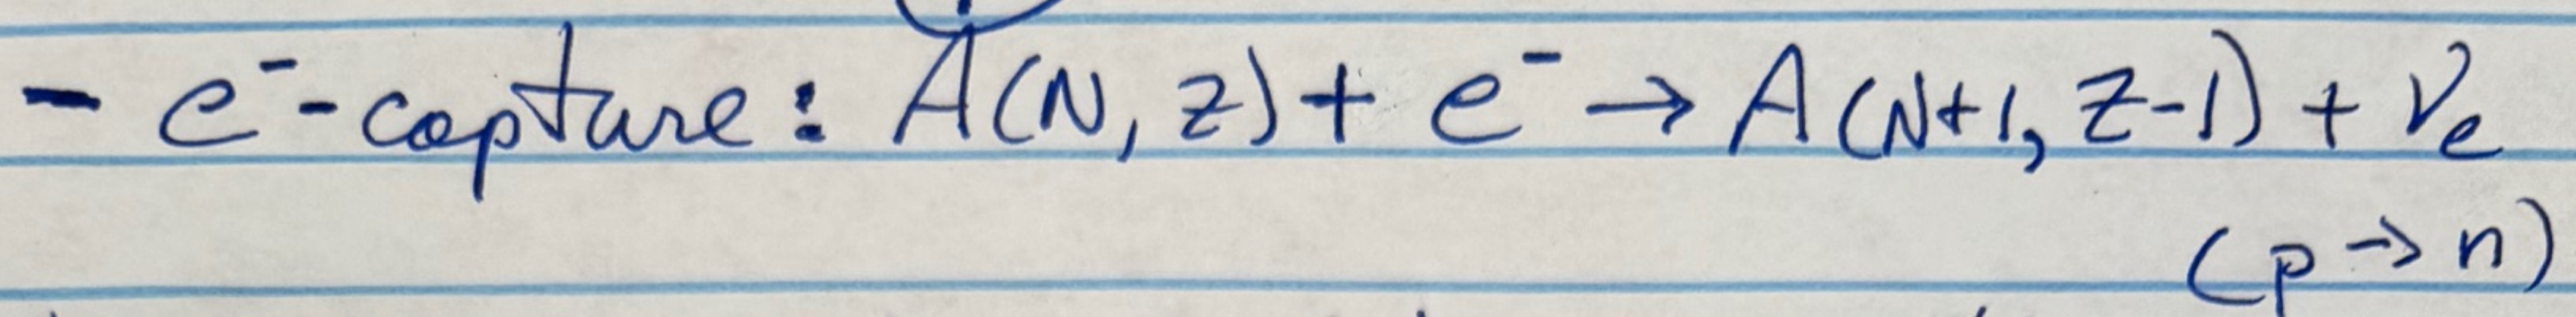 - e⁻-capture: A(N, Z) + e⁻ → A(N+1, Z-1) + νe
(p → n)